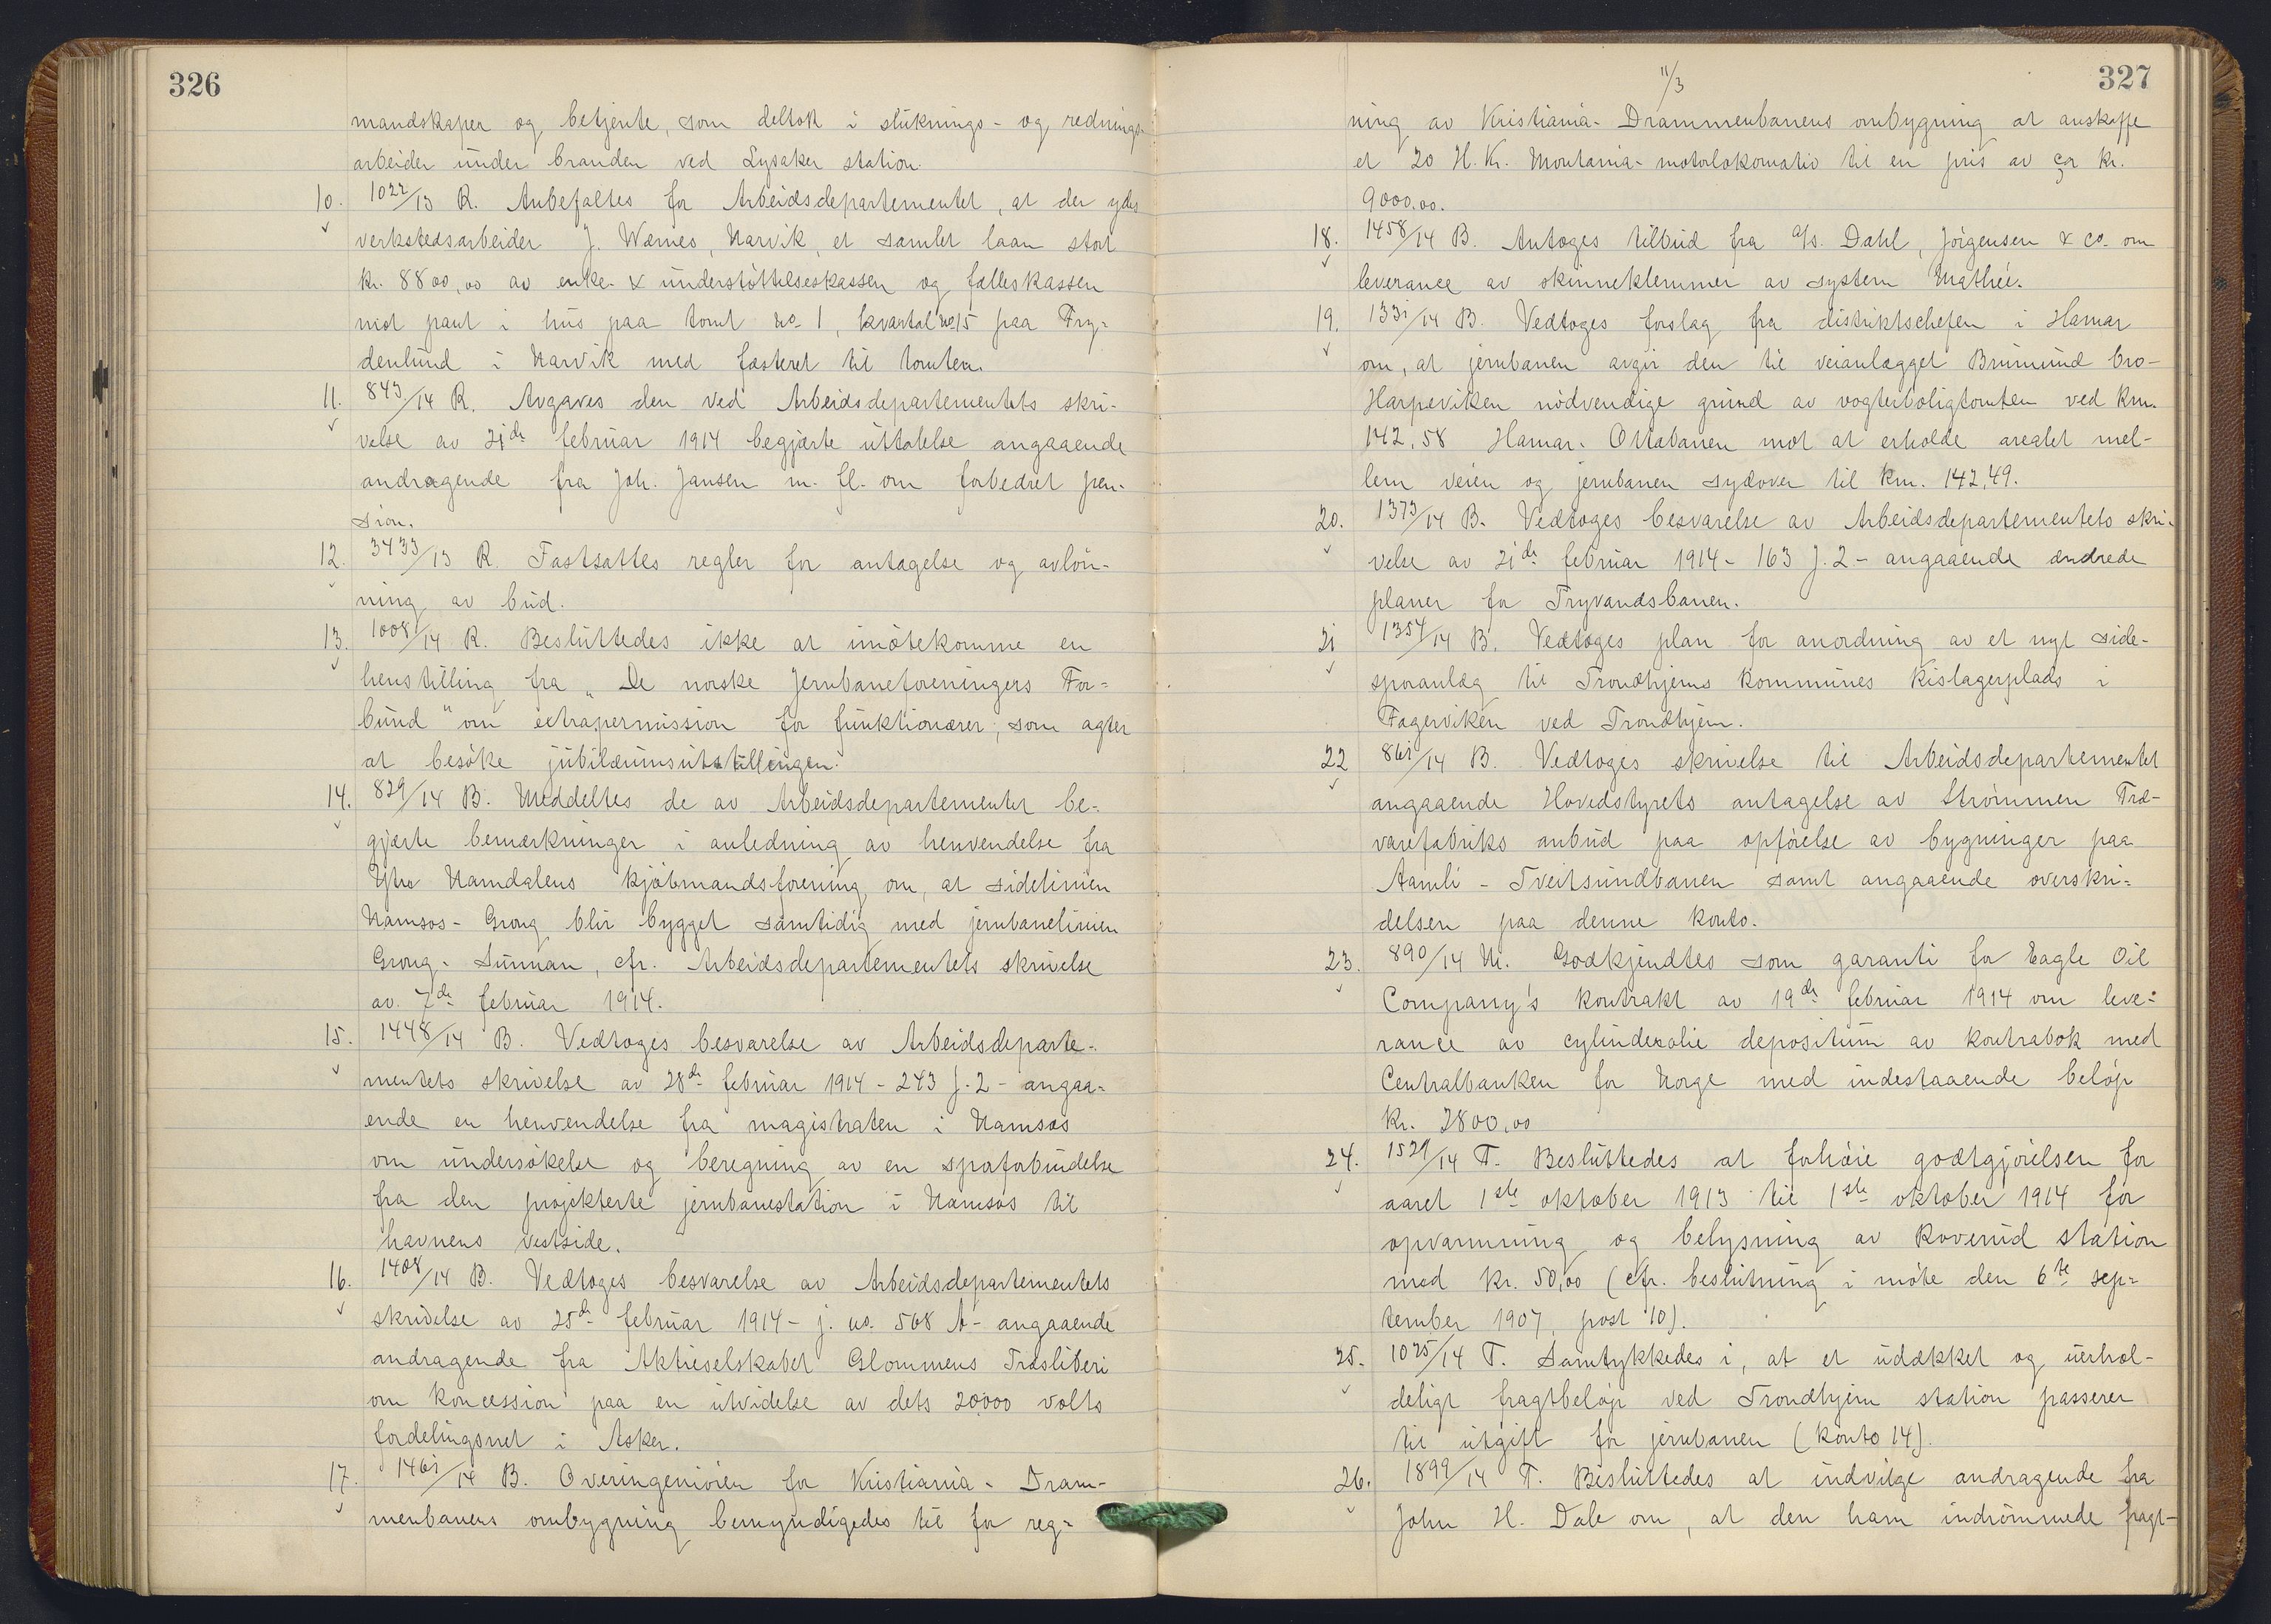 326
mandskaper og betjente, som deltok i sluknings- og rednings-
arbeider under branden ved Lysaker station.
10. 1022/13 R. Anbefaltes for Arbeidsdepartementet, at der ydes
verkstedsarbeider J. Wærnes, Narvik, et samlet laan stort
kr. 8800,00 av enke- & understöttelseskassen og fælleskassen
mot pant i hus paa tomt no. 1, kvartal no 15 paa Fry-
denlund i Narvik med fæsteret til tomten.
11. 843/14 R. Avgaves den ved Arbeidsdepartementets skri-
velse av 21de februar 1914 begjærte uttalelse angaaende
andragende fra Joh. Jansen m. fl. om forbedret pen-
sion.
12. 3433/13 R. Fastsattes regler for antagelse og avlön-
ning av bud.
13. 1008/14 R. Besluttedes ikke at imötekomme en
henstilling fra „De norske Jernbaneforeningers For-
bund" om extrapermission for funktionærer, som agter
at besöke jubilæumsutstillingen.
14. 829/14 B. Meddeltes de av Arbeidsdepartementet be-
gjærte bemærkninger i anledning av henvendelse fra
Ytre Namdalens Kjöbmandsforening om, at sidelinien
Namsos - Grong blir bygget samtidig med jernbanelinien
Grong - Sunnan, cfr. Arbeidsdepartementets skrivelse
av 7de februar 1914.
15. 1448/14 B. Vedtoges besvarelse av Arbeidsdeparte-
mentets skrivelse av 28de februar 1914 - 243 J. 2 - angaa-
ende en henvendelse fra magistraten i Namsos
om undersökelse og beregning av en sporforbindelse
fra den projekterte jernbanestation i Namsos til
havnens vestside.
16. 1408/14 B. Vedtoges besvarelse av Arbeidsdepartementets
skrivelse av 25de februar 1914 - j. no. 568 A - angaaende
andragende fra Aktieselskabet Glommens Træsliberi
om koncession paa en utvidelse av dets 20000 volts
fordelingsnet i Asker.
17. 1461/14 B. Overingeniören for Kristiania - Dram-
menbanens ombygning bemyndigedes til for reg-
11/3
327
ning av Kristiania - Drammenbanens ombygning at anskaffe
et 20 H.K. Montania-motorlokomotiv til en pris av ca kr.
9000,00.
18. 1458/14 B. Antoges tilbud fra A/S. Dahl, Jörgensen & Co. om
leverance av skinneklemmer av system Mathée.
19. 1331/14 B. Vedtoges forslag fra distriktschefen i Hamar
om, at jernbanen avgir den til veianlægget Brumund bro -
Harpeviken nödvendige grund av vogterboligtomten ved km.
142,58 Hamar - Ottabanen mot at erholde arealet mel-
lem veien og jernbanen sydover til km. 142,49.
20. 1373/14 B. Vedtoges besvarelse av Arbeidsdepartementets skri-
velse av 21de februar 1914 - 163 J. 2 - angaaende ændrede
planer for Tryvandsbanen.
21 1354/14 B. Vedtoges plan for anordning av et nyt side-
sporanlæg til Trondhjems kommunes kislagerplads i
Fagerviken ved Trondhjem.
22 861/14 B. Vedtoges skrivelse til Arbeidsdepartementet
angaaende Hovedstyrets antagelse av Strömmen Træ-
varefabriks anbud paa opförelse av bygninger paa
Aamli - Tveitsundbanen samt angaaende overskri-
delsen paa denne konto.
23. 890/14 M. Godkjendtes som garanti for Eagle Oil
Company's kontrakt av 19de februar 1914 om leve-
rance av cylinderolie depositum av kontrabok med
Centralbanken for Norge med indestaaende belöp
kr. 2800,00
24. 1529/14 T. Besluttedes at forhöie godtgjörelsen for
aaret 1ste oktober 1913 til 1ste oktober 1914 for
opvarmning og belysning av Roverud station
med kr. 50,00 (cfr. beslutning i möte den 6te sep-
tember 1907, post 10).
25. 1025/14 T. Samtykkedes i, at et udækket og uerhol-
deligt fragtbelöp ved Trondhjem station passerer
til utgift for jernbanen (konto 14).
26. 1899/14 T. Besluttedes at indvilge andragende fra
John H. Dale om, at den ham indrömmede fragt-